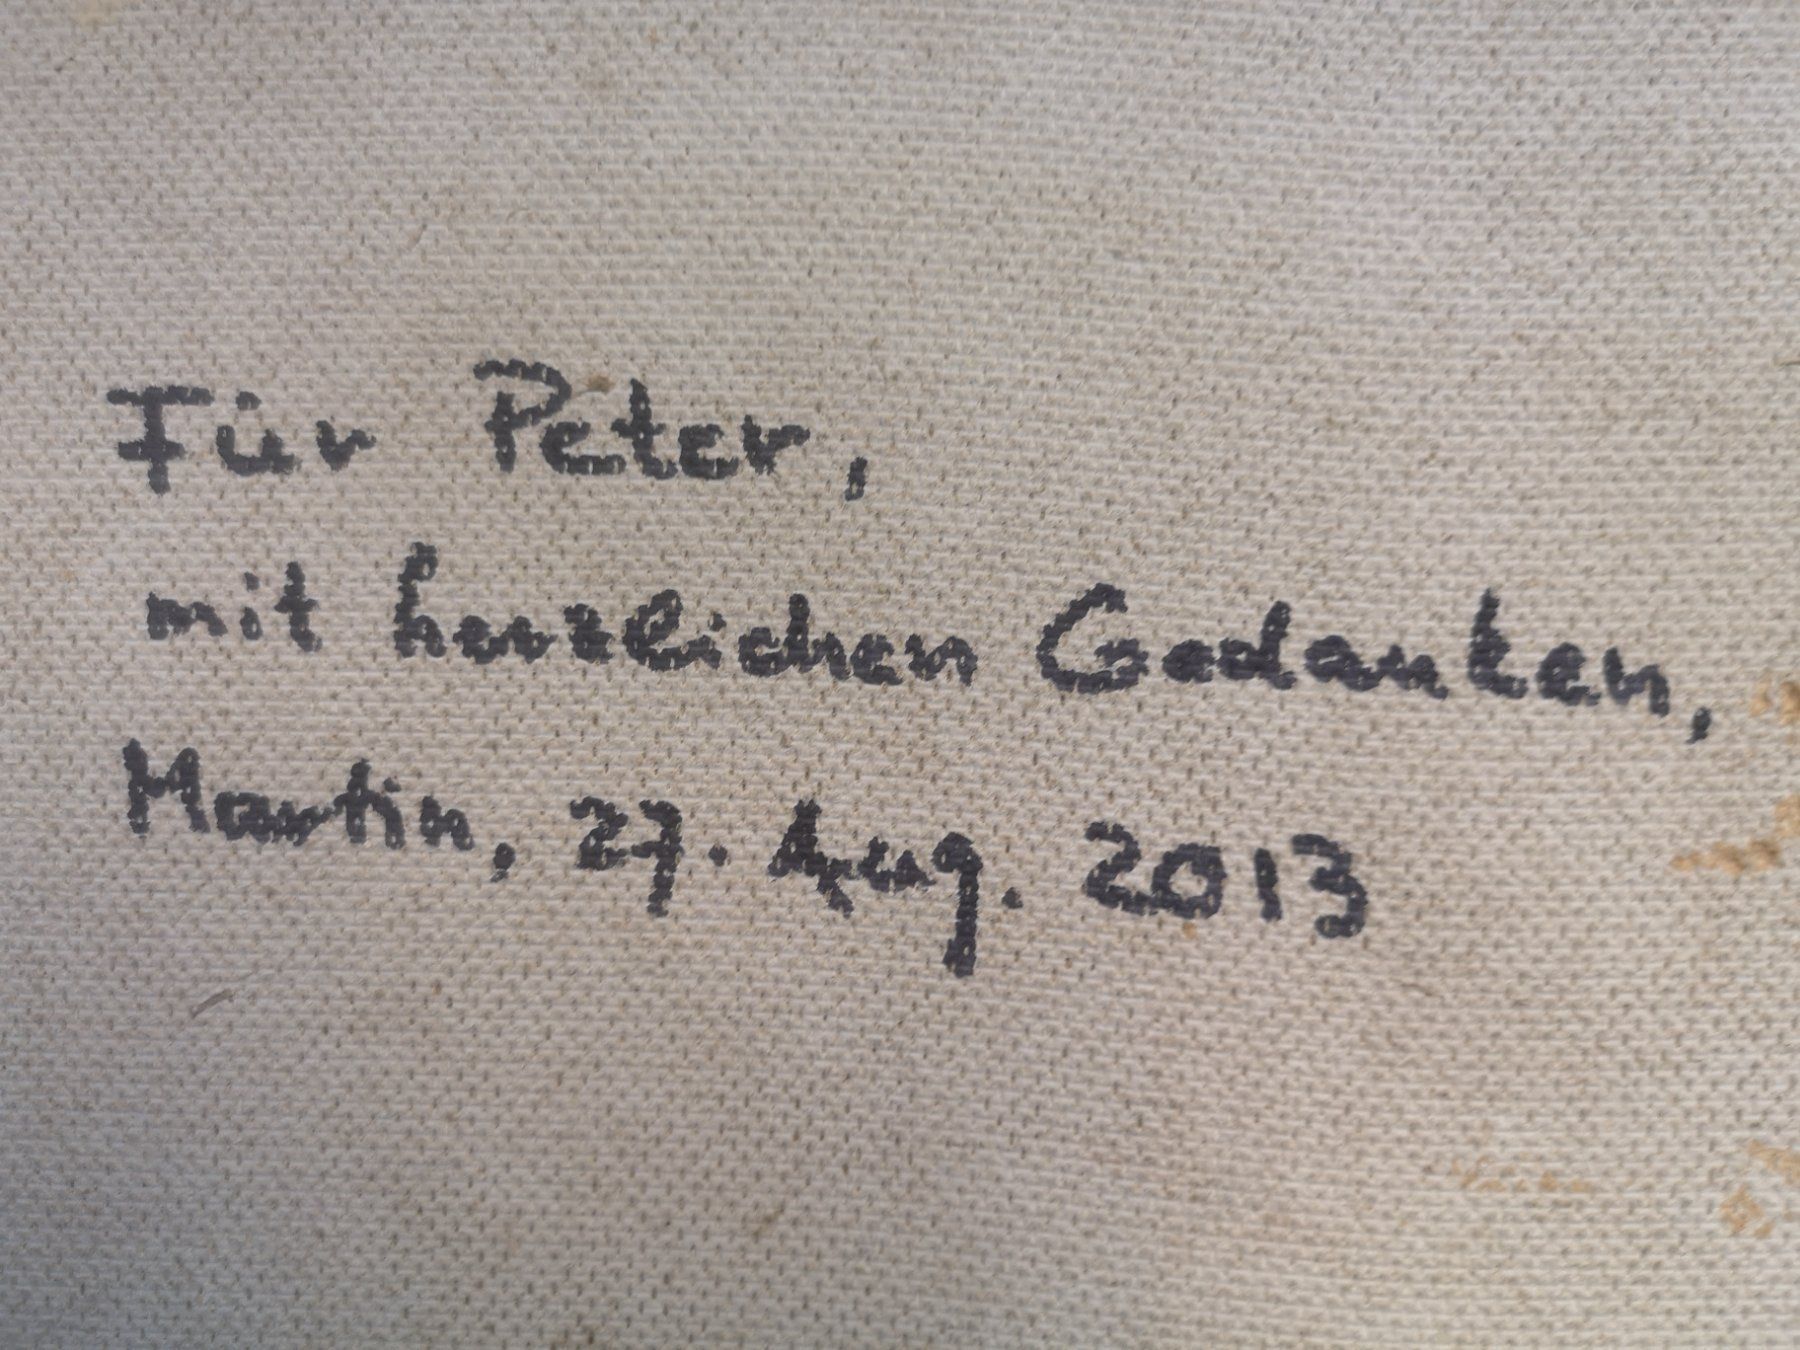 Für Peter,
mit herzlichen Gedanken,
Martin, 27. Aug. 2013